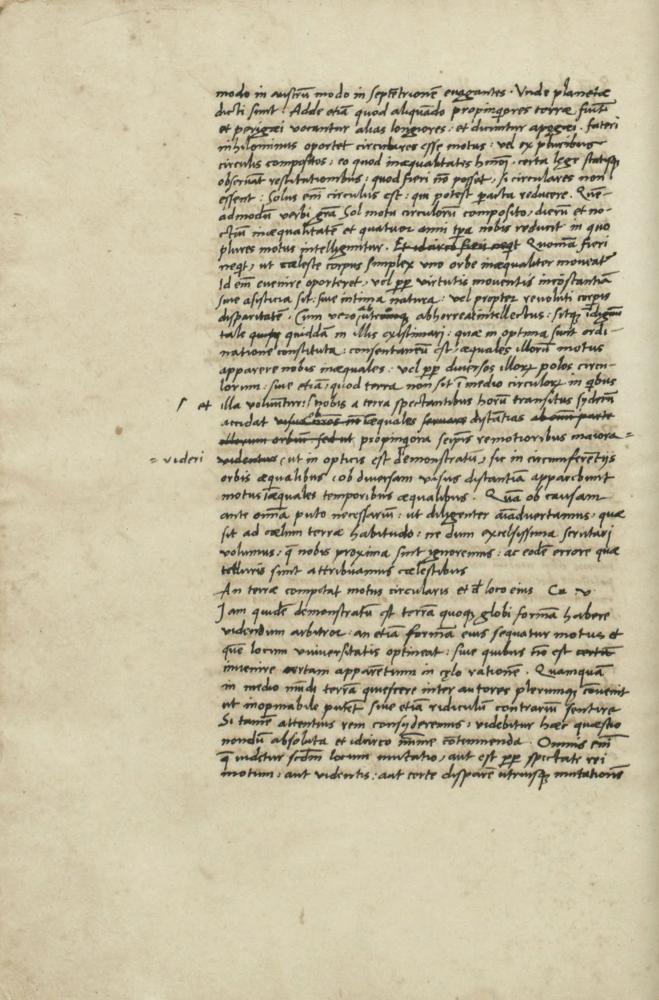 modo in austrū modo in septētrionē evagantes . Vnde planetæ
dicti sunt . Adde etiā quod aliquādo propinquiores terræ fiūt
et perigæi vocantur alias longiores : et dicuntur apogæi . fateri
nihilominus oportet circulares esse motus : vel ex pluribus
circulis compositos : eo quod inæqualitates certa lege statisqȝ
observāt restitutionibus : quod fieri nō posset , si circulares non
essent : Solus em̄ circulus est : qui potest pacta reducere . Quē-
admodū verbi grā Sol motu circulorū composito , dierū et no-
ctiū inæqualitatē et quatuor anni tpa nobis reducit in quo
plures motus intelliguntur . Et idcirco fieri neqt Quoniā fieri
neqt , ut cæleste corpus simplex uno orbe inæqualiter moveat᷑
Id em̄ evenire oporteret , vel ꝓp virtutis moventis incōstantiā
sive asciticia sit : sive intima natura : vel propter revoluti corpis
disparitatē . Cum vero ab utroqȝ abhorreat intellectus : sitqȝ īdignū
tale quidda in illis existimari : quæ in optima sunt ordi-
natione constituta : consentaneū est , æquales illorū motus
apparere nobis inæquales : vel ꝓp diversos illoꝝ polos circu-
lorum : sive etiā quod terra non sit ī medio circuloꝝ in qibus
⌈ et illa voluuntur : ⌈ nobis a terra spectantibus horū transitus syderū
accidat ob inæquales distātias ab omni parte
illorum orbiū sed ut propinqiora seipsis remotioribus maiora =
= videri videntur , ut in opticis est demonstratū , sic in circumferētijs
orbis æqualibus , ob diversam visus distantiā apparebunt
motus īæquales temporibus æqualibus . Quā ob causam
ante omīa puto necessariū : ut diligenter aīadvertamus : quæ
sit ad cœlum terræ habitudo : ne dum excelsissima scrutari
volumus , q̄ nobis proxima sunt ignoremus : ac eodē errore quæ
telluris sunt attribuamus cælestibus
An terræ competat motus circularis et d̄ loco eius Ca v
Iam quidē demonstratū est terrā quoqȝ globi formā habere
videndum arbitror : an etiā formā eius sequatur motus et
quē locum universitatis optineat : sine quibus nō est certā
invenire certam apparētium in cęlo rationē . Quamquā
in medio mūdi terrā quiescere inter autores plerumqȝ cōvenit
ut inopinabile putēt sive etiā ridiculū contrariū sentire
Si tamē attentius rem consyderemus : videbitur hæc quæstio
nondū absoluta et idcirco minime cōtemnenda . Omnis em̄
q̄ videtur scdm locum mutatio , aut est ꝓp spectate rei
motum , aut videntis , aut certe disparē utriusqȝ mutationē